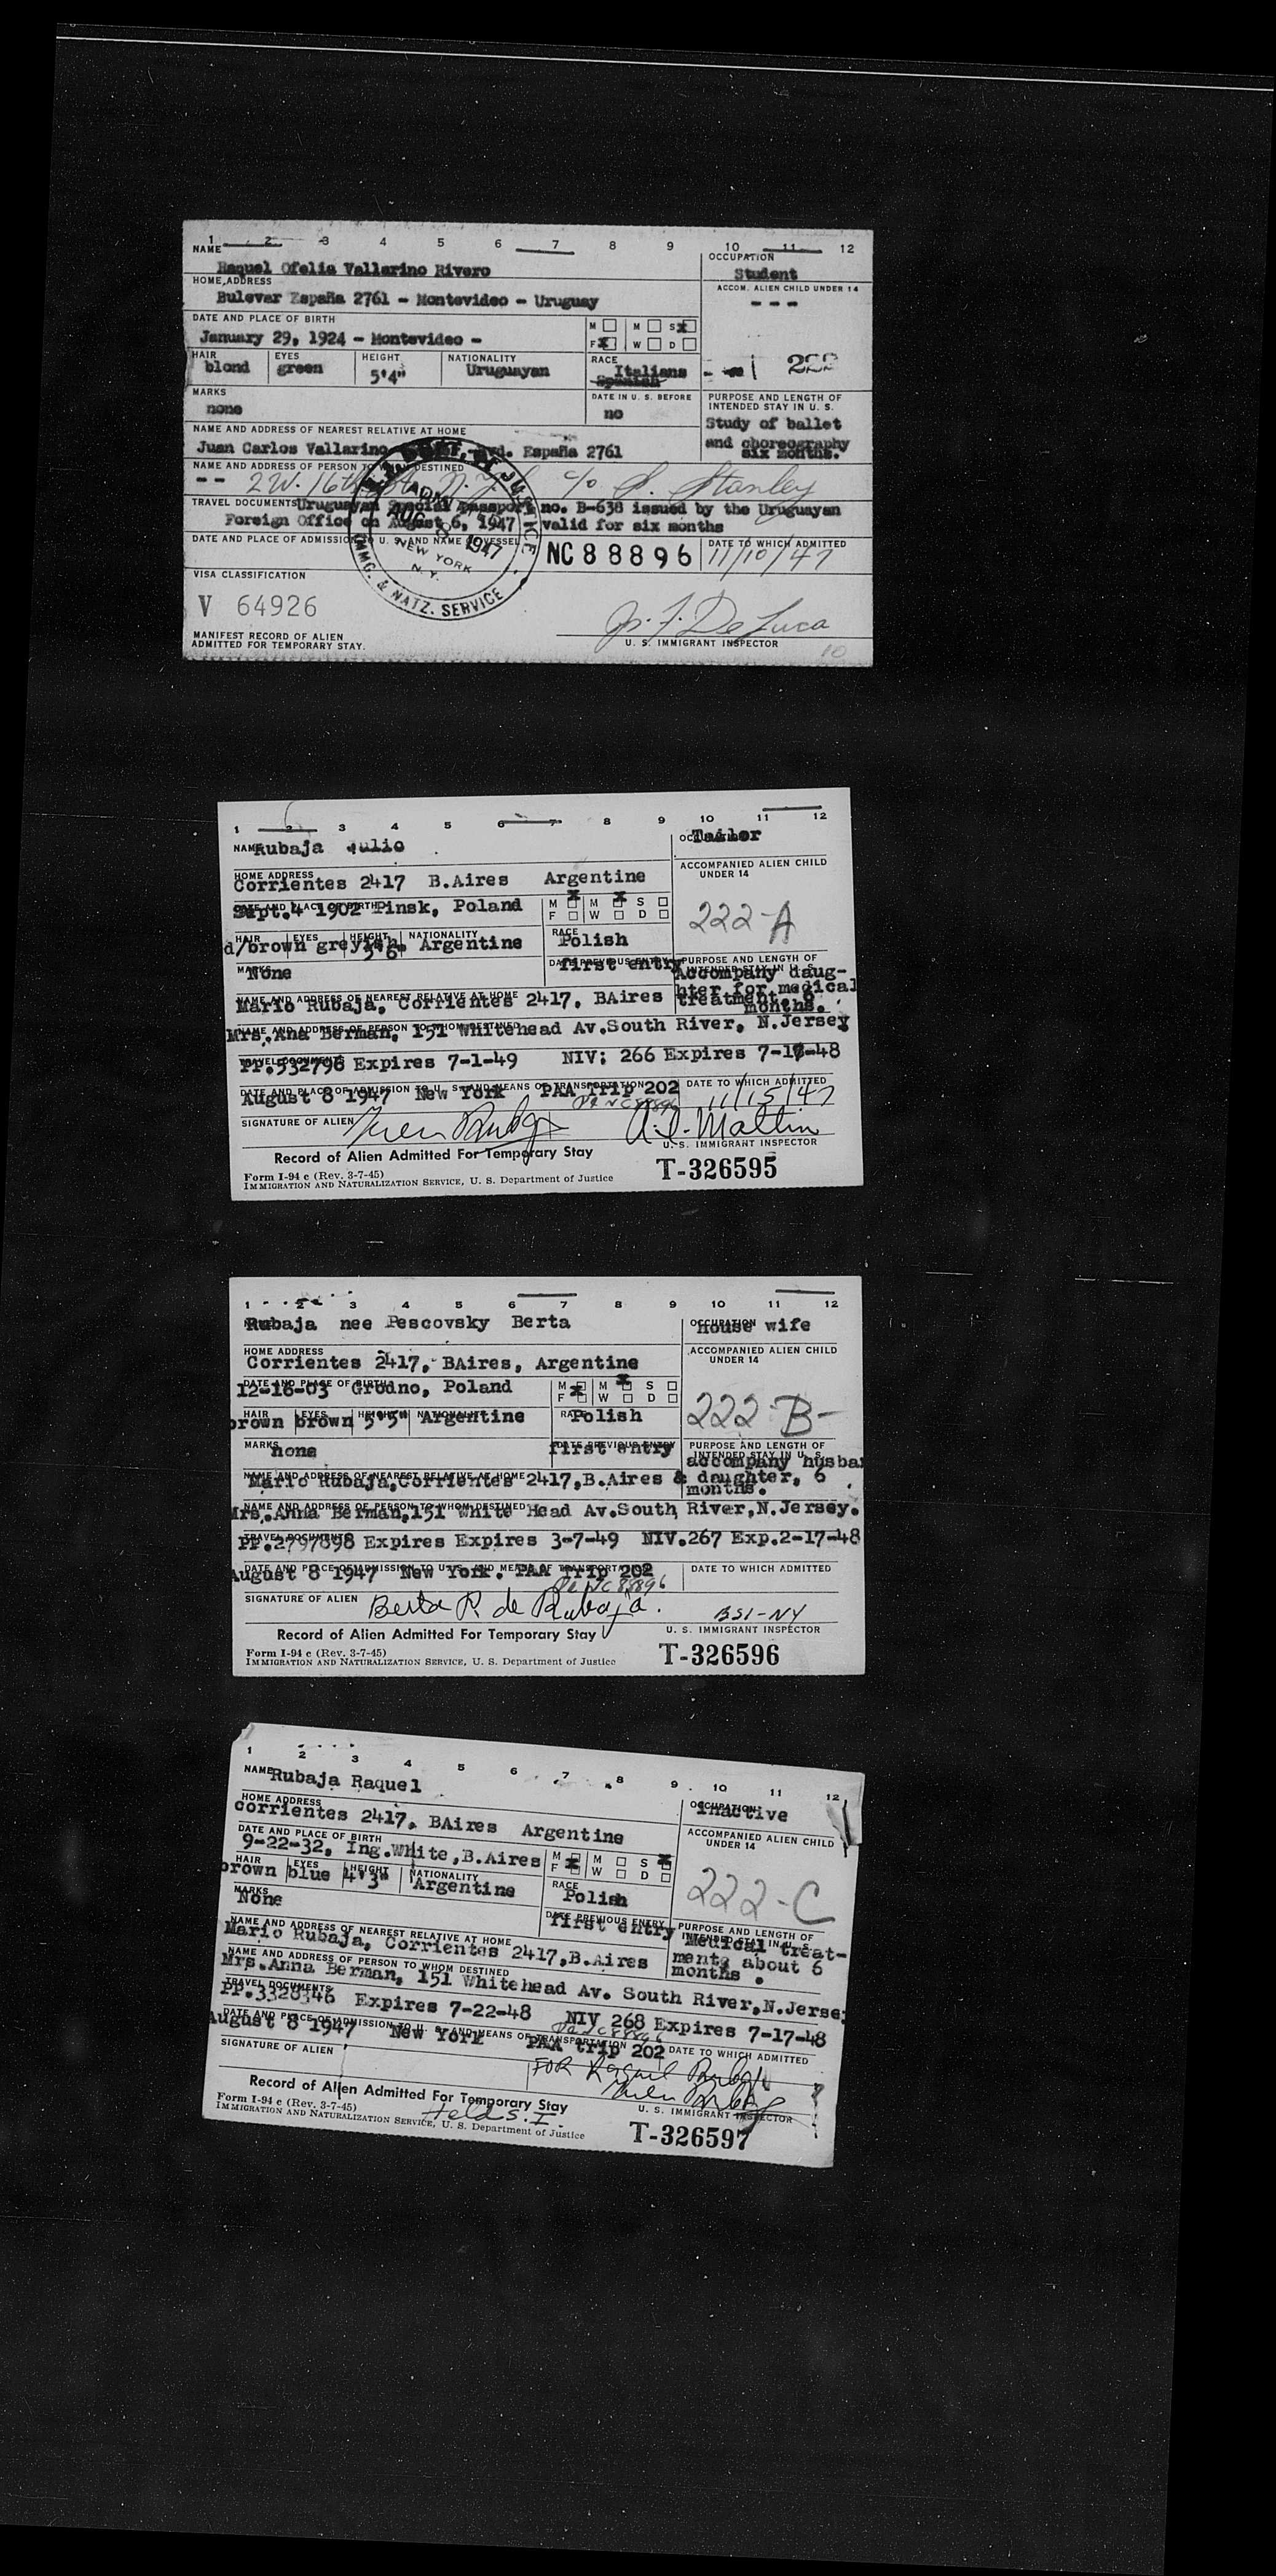 1 2 3 4 5 6 7 8 9 10 11 12
NAME
Raquel Ofelia Vallarino Rivero
OCCUPATION
Student
HOME ADDRESS
Bulevar España 2761 - Montevideo - Uruguay
ACCOM. ALIEN CHILD UNDER 14
- - -
DATE AND PLACE OF BIRTH
January 29, 1924 - Montevideo -
M M S X
F X W D
HAIR EYES HEIGHT NATIONALITY RACE
blond green 5'4" Uruguayan Italians
Spanish
222
MARKS
none
DATE IN U. S. BEFORE
no
PURPOSE AND LENGTH OF
INTENDED STAY IN U. S.
Study of ballet
and choreography
six months.
NAME AND ADDRESS OF NEAREST RELATIVE AT HOME
Juan Carlos Vallarino España 2761
NAME AND ADDRESS OF PERSON TO WHOM DESTINED
-- 2 W. 16th St. N.Y. c/o S. Stanley
TRAVEL DOCUMENTS Uruguayan Special Passport no. B-638 issued by the Uruguayan
Foreign Office on August 6, 1947 valid for six months
DATE AND PLACE OF ADMISSION TO U. S. AND NAME OF VESSEL
NC 88896
DATE TO WHICH ADMITTED
11/10/47
U.S. DEPT. OF JUSTICE
ADM
AUG 8 1947
NEW YORK
N. Y.
IMMG. & NATZ. SERVICE
VISA CLASSIFICATION
V 64926
De Luca
MANIFEST RECORD OF ALIEN
ADMITTED FOR TEMPORARY STAY.
U. S. IMMIGRANT INSPECTOR
10
1 2 3 4 5 6 7 8 9 10 11 12
NAME Rubaja Julio
OCCUPATION Tailor
HOME ADDRESS
Corrientes 2417 B.Aires Argentine
ACCOMPANIED ALIEN CHILD
UNDER 14
DATE AND PLACE OF BIRTH
Sept.4 1902 Pinsk, Poland
M X M X S
F W D
222-A
HAIR EYES HEIGHT NATIONALITY RACE
d/brown greyish 5'6" Argentine Polish
MARKS None
DATE PREVIOUS ENTRY
first entry
PURPOSE AND LENGTH OF
INTENDED STAY IN U. S.
Accompany daug-
hter for medical
treatment, 6
months.
NAME AND ADDRESS OF NEAREST RELATIVE AT HOME
Mario Rubaja, Corrientes 2417, BAires
NAME AND ADDRESS OF PERSON TO WHOM DESTINED
Mrs.Ana Berman, 151 Whitehead Av.South River, N.Jersey
TRAVEL DOCUMENTS
PP.532796 Expires 7-1-49 NIV: 266 Expires 7-17-48
DATE AND PLACE OF ADMISSION TO U. S. AND MEANS OF TRANSPORTATION
August 8 1947 New York PAA Trip 202
NC88896
DATE TO WHICH ADMITTED
11/15/47
SIGNATURE OF ALIEN
A.S. Mattin
U. S. IMMIGRANT INSPECTOR
Record of Alien Admitted For Temporary Stay
T-326595
Form I-94 c (Rev. 3-7-45)
IMMIGRATION AND NATURALIZATION SERVICE, U. S. Department of Justice
1 2 3 4 5 6 7 8 9 10 11 12
Rubaja nee Pescovsky Berta
OCCUPATION
House wife
HOME ADDRESS
Corrientes 2417, BAires, Argentine
ACCOMPANIED ALIEN CHILD
UNDER 14
DATE AND PLACE OF BIRTH
12-16-03 Grodno, Poland
M M X S
F X W D
222-B-
HAIR EYES HEIGHT NATIONALITY RACE
brown brown 5'5" Argentine Polish
MARKS none
DATE PREVIOUS ENTRY
first entry
PURPOSE AND LENGTH OF
INTENDED STAY IN U. S.
accompany husba
& daughter, 6
months.
NAME AND ADDRESS OF NEAREST RELATIVE AT HOME
Mario Rubaja,Corrientes 2417,B.Aires
NAME AND ADDRESS OF PERSON TO WHOM DESTINED
Mrs.Anna Berman,151 White Head Av.South River,N.Jersey.
TRAVEL DOCUMENTS
PP.2797898 Expires Expires 3-7-49 NIV.267 Exp.2-17-48
DATE AND PLACE OF ADMISSION TO U. S. AND MEANS OF TRANSPORTATION
August 8 1947 New York. PAA Trip 202
NC88896
DATE TO WHICH ADMITTED
SIGNATURE OF ALIEN Berta P. de Rubaja.
BSI-NY
U. S. IMMIGRANT INSPECTOR
Record of Alien Admitted For Temporary Stay
T-326596
Form I-94 c (Rev. 3-7-45)
IMMIGRATION AND NATURALIZATION SERVICE, U. S. Department of Justice
1 2 3 4 5 6 7 8 9 10 11 12
NAME Rubaja Raquel
OCCUPATION
Inactive
HOME ADDRESS
corrientes 2417, BAires Argentine
ACCOMPANIED ALIEN CHILD
UNDER 14
DATE AND PLACE OF BIRTH
9-22-32, Ing.White,B.Aires
M M S X
F X W D
222-C
HAIR EYES HEIGHT NATIONALITY RACE
brown blue 4'3" Argentine Polish
MARKS
None
DATE PREVIOUS ENTRY
first entry
PURPOSE AND LENGTH OF
INTENDED STAY IN U. S.
Medical treat-
ment, about 6
months .
NAME AND ADDRESS OF NEAREST RELATIVE AT HOME
Mario Rubaja, Corrientes 2417,B.Aires
NAME AND ADDRESS OF PERSON TO WHOM DESTINED
Mrs.Anna Berman, 151 Whitehead Av. South River,N.Jerse
TRAVEL DOCUMENTS
PP.3328346 Expires 7-22-48 NIV 268 Expires 7-17-48
NC88896
DATE AND PLACE OF ADMISSION TO U. S. AND MEANS OF TRANSPORTATION
August 8 1947 New York PAA trip 202
DATE TO WHICH ADMITTED
SIGNATURE OF ALIEN
FOR Raquel Rubaja
U. S. IMMIGRANT INSPECTOR
Record of Alien Admitted For Temporary Stay
Held S.I.
T-326597
Form I-94 c (Rev. 3-7-45)
IMMIGRATION AND NATURALIZATION SERVICE, U. S. Department of Justice